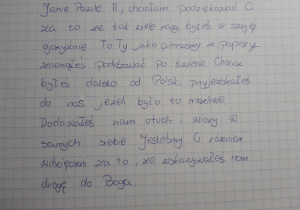 Janie Pawle II, chciałam podziękować Ci
za to że tak wiele razy byłeś w swojej
ojczyźnie. To Ty jako pierwszy z papieży
zacząłeś podróżować po świecie. Chociaż
byłeś daleko od Polski, przyjeżdżałeś
do nas jeżeli było to możliwe.
Dodawałeś nam otuch i wiary w
samych siebie. Jesteśmy Ci również
wdzięczni za to, że wskazywałeś nam
drogę do Boga.